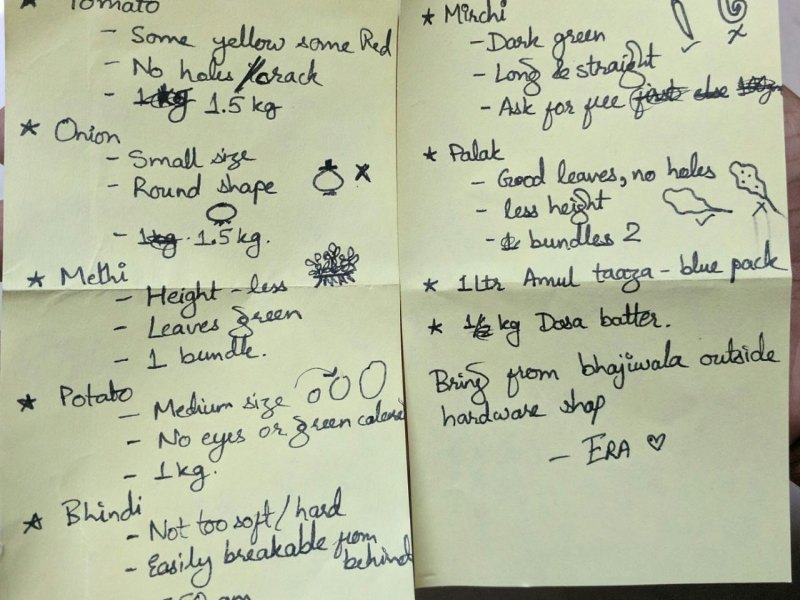 ★ Tomato
- Some yellow some Red
- No holes / crack
- 1kg 1.5 kg
★ Onion
- Small size
- Round shape
- 1kg. 1.5 kg.
★ Methi
- Height - less
- Leaves green
- 1 bundle.
★ Potato
- Medium size
- No eyes or green colored
- 1 kg.
★ Bhindi
- Not too soft / hard
- Easily breakable from
behind
★ Mirchi
- Dark green
- Long & straight
- Ask for free
★ Palak
- Good leaves, no holes
- less height
- bundles 2
★ 1 Ltr Amul taaza - blue pack
★ kg Dosa batter.
Bring from bhajiwala outside
hardware shop
- ERA ♡